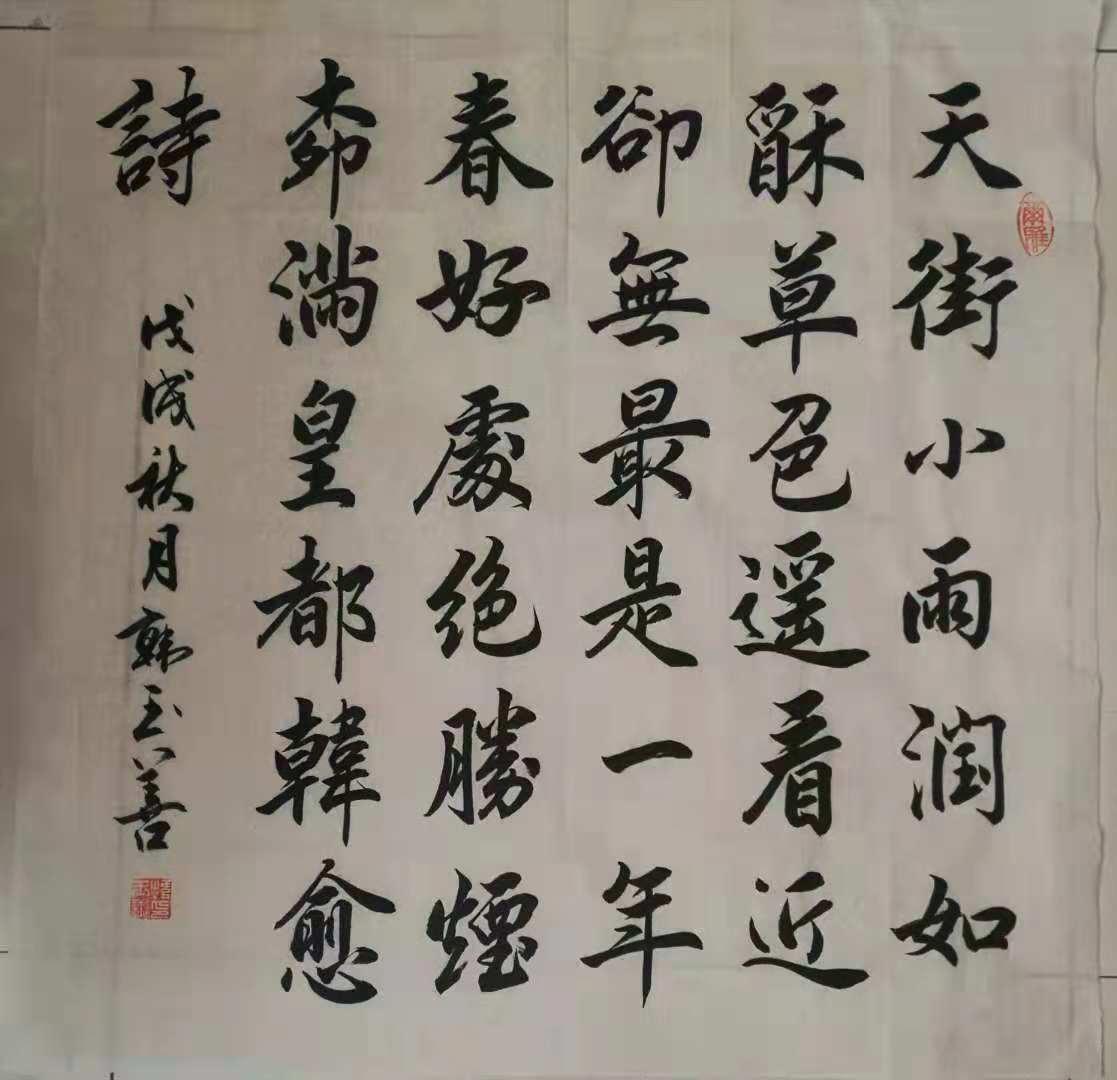 天街小雨潤如
酥草色遥看近
卻無最是一年
春好處絕勝煙
柳滿皇都韓愈
詩
戊戌秋月韩玉善